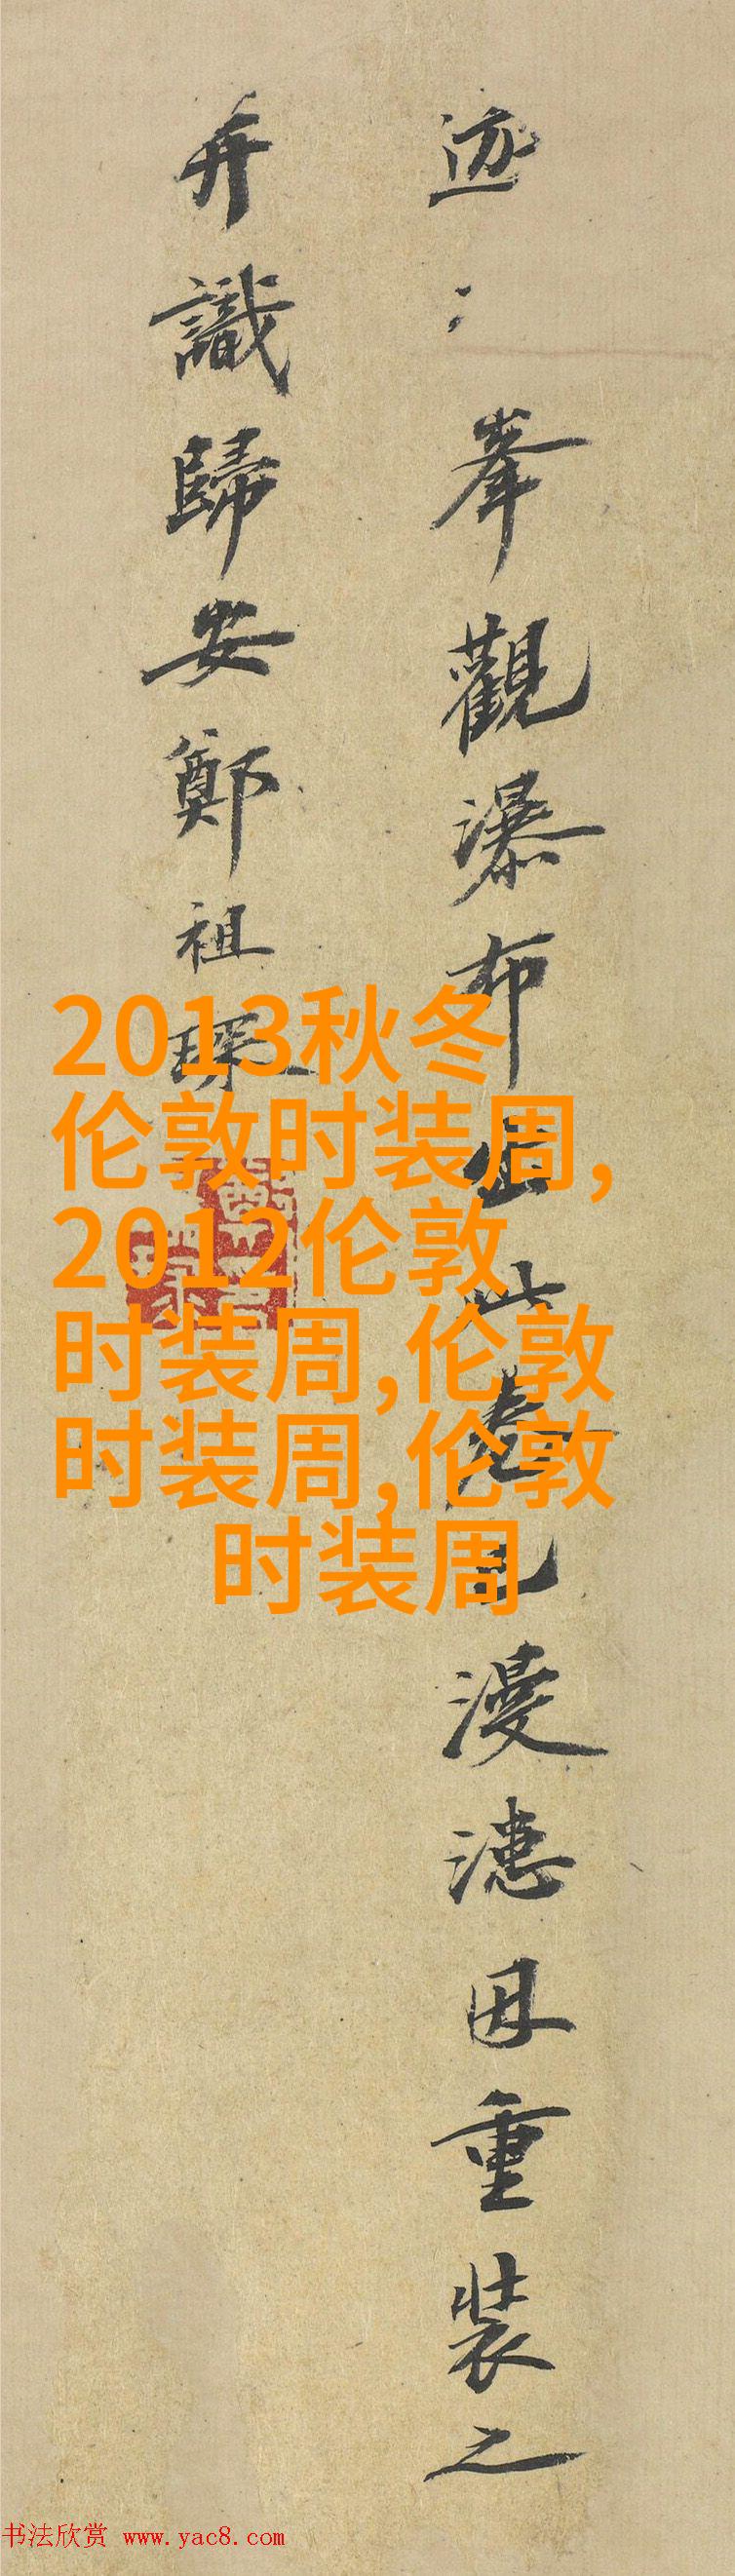 迹
峯觀瀑布此卷已漫漶因重裝之
并識歸安鄭祖琛
2013秋冬
伦敦时装周,
2012伦敦
时装周,伦敦
时装周,伦敦
时装周
书法欣赏 www.yac8.com